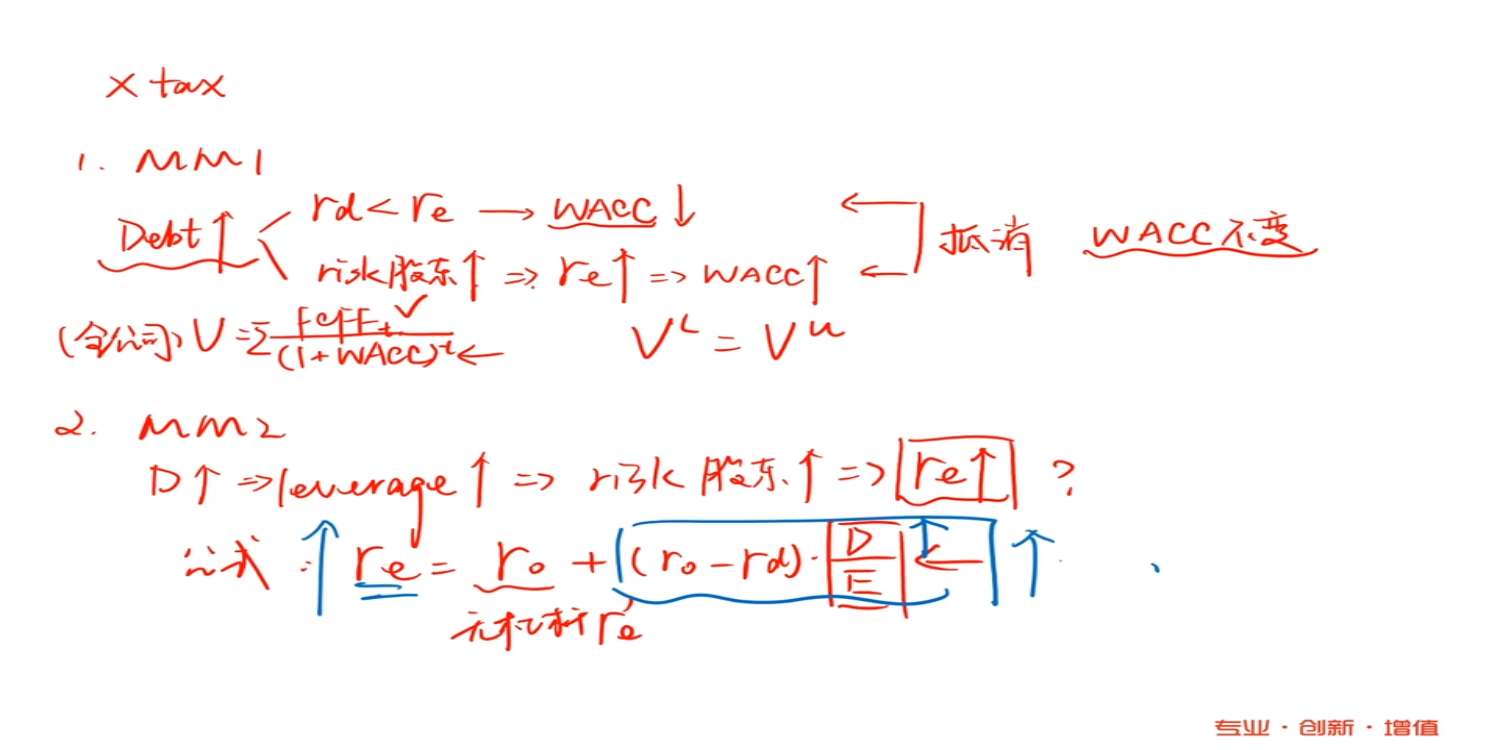 × tax
1. MM1
Debt↑ rd < re → WACC↓
risk股东↑ => re↑ => WACC↑ 抵消 WACC不变
(全公司) V = Σ FCFFt / (1+WACC)^t ← V^L = V^u
2. MM2
D↑ => leverage↑ => risk 股东↑ => re↑ ?
公式: ↑ re = r₀ + (r₀ - rd)· D/E ↑
无杠杆 re
专业·创新·增值